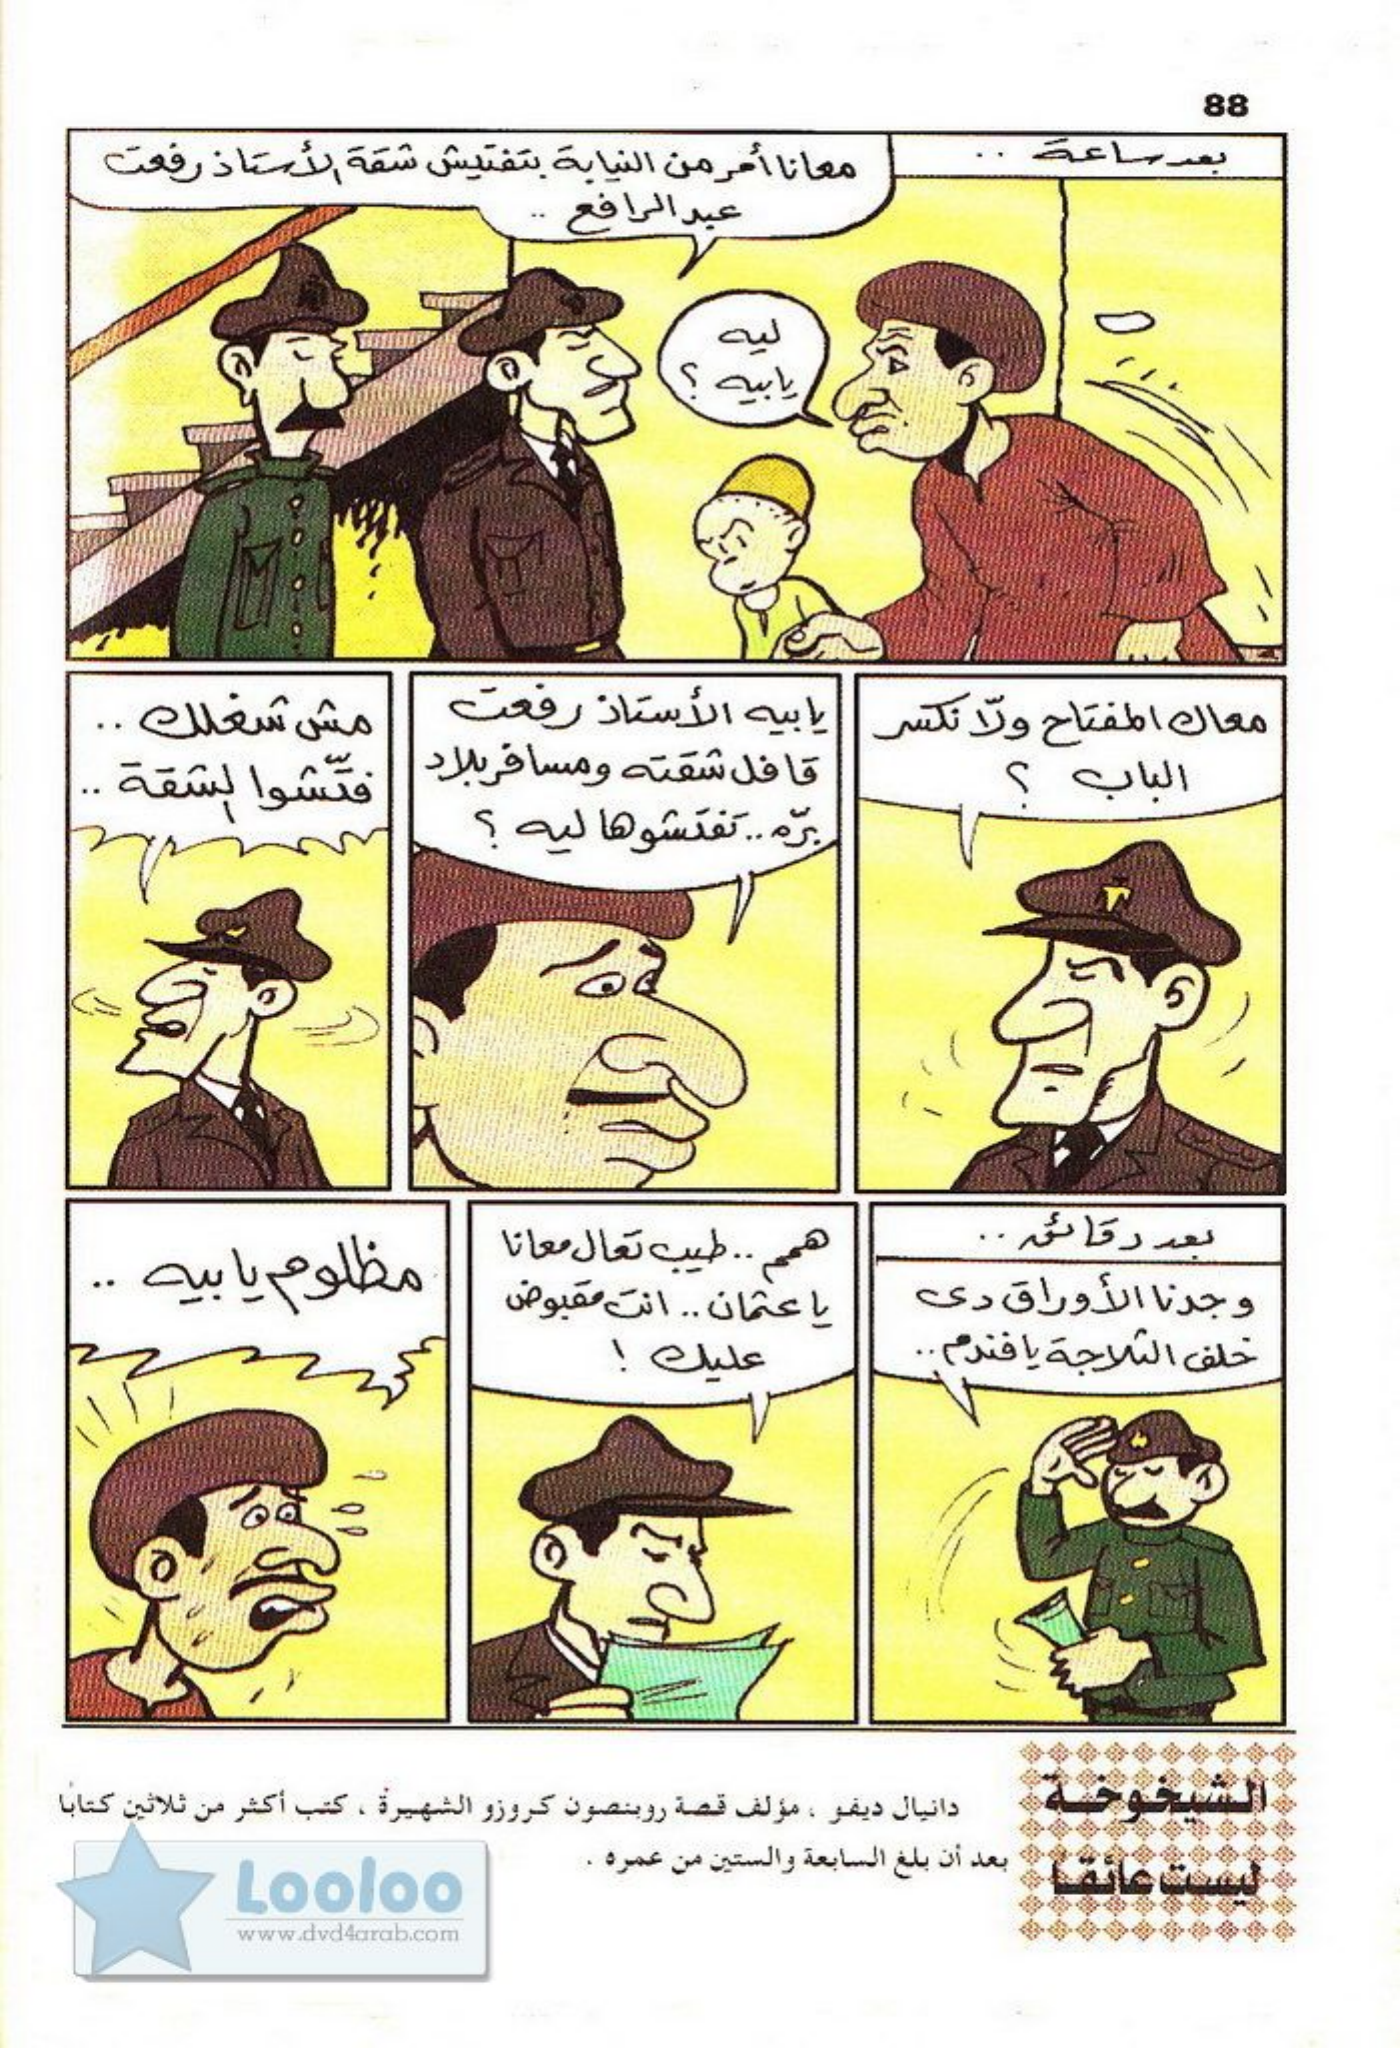 88
بعد ساعة ..
معانا أمر من النيابة بتفتيش شقة الأستاذ رفعت
عبد الرافع ..
ليه
يا بيه ؟
معاك المفتاح ولّا نكسر
الباب ؟
يا بيه الأستاذ رفعت
قافل شقته ومسافر بلاد
برّه .. تفتشوها ليه ؟
مش شغلك ..
فتّشوا الشقة ..
بعد دقائق ..
وجدنا الأوراق دى
خلف الثلاجة يا فندم ..
همم .. طيب تعال معانا
يا عثمان .. انت مقبوض
عليك !
مظلوم يا بيه ..
الشيخوخة
ليست عائقا
دانيال ديفو ، مؤلف قصة روبنصون كروزو الشهيرة ، كتب أكثر من ثلاثين كتابا
بعد أن بلغ السابعة والستين من عمره .
Looloo
www.dvd4arab.com